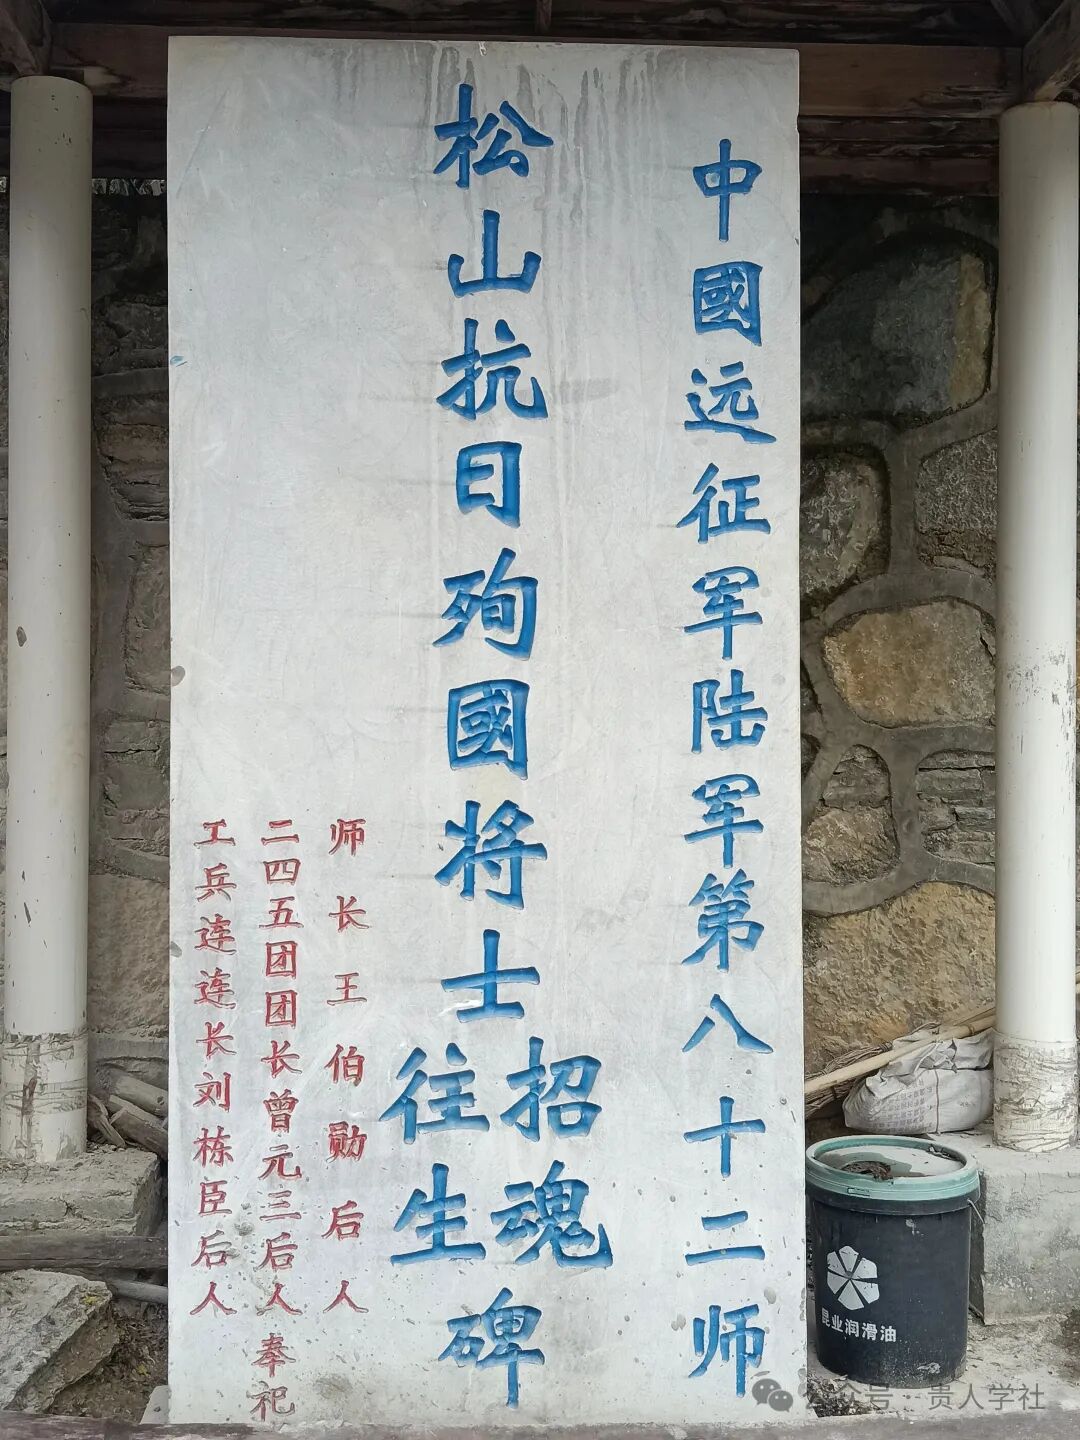 中國远征军陆军第八十二师
松山抗日殉國将士招魂往生碑
师长王伯勋后人
二四五团团长曾元三后人奉祀
工兵连连长刘栋臣后人
昆业润滑油
公众号·贵人学社